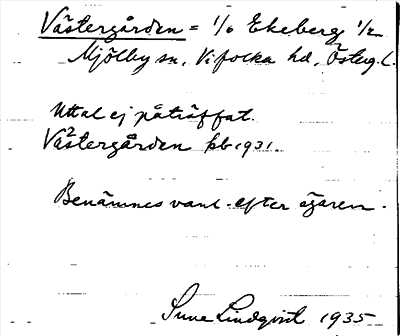 Västergården = 1/6 Ekeberg 1/2
Mjölby sn, Vifolka hd, Österg. l.
Uttal ej påträffat.
Västergården kb 1931.
Benämnes vanl. efter ägaren.
Sune Lindqvist 1935